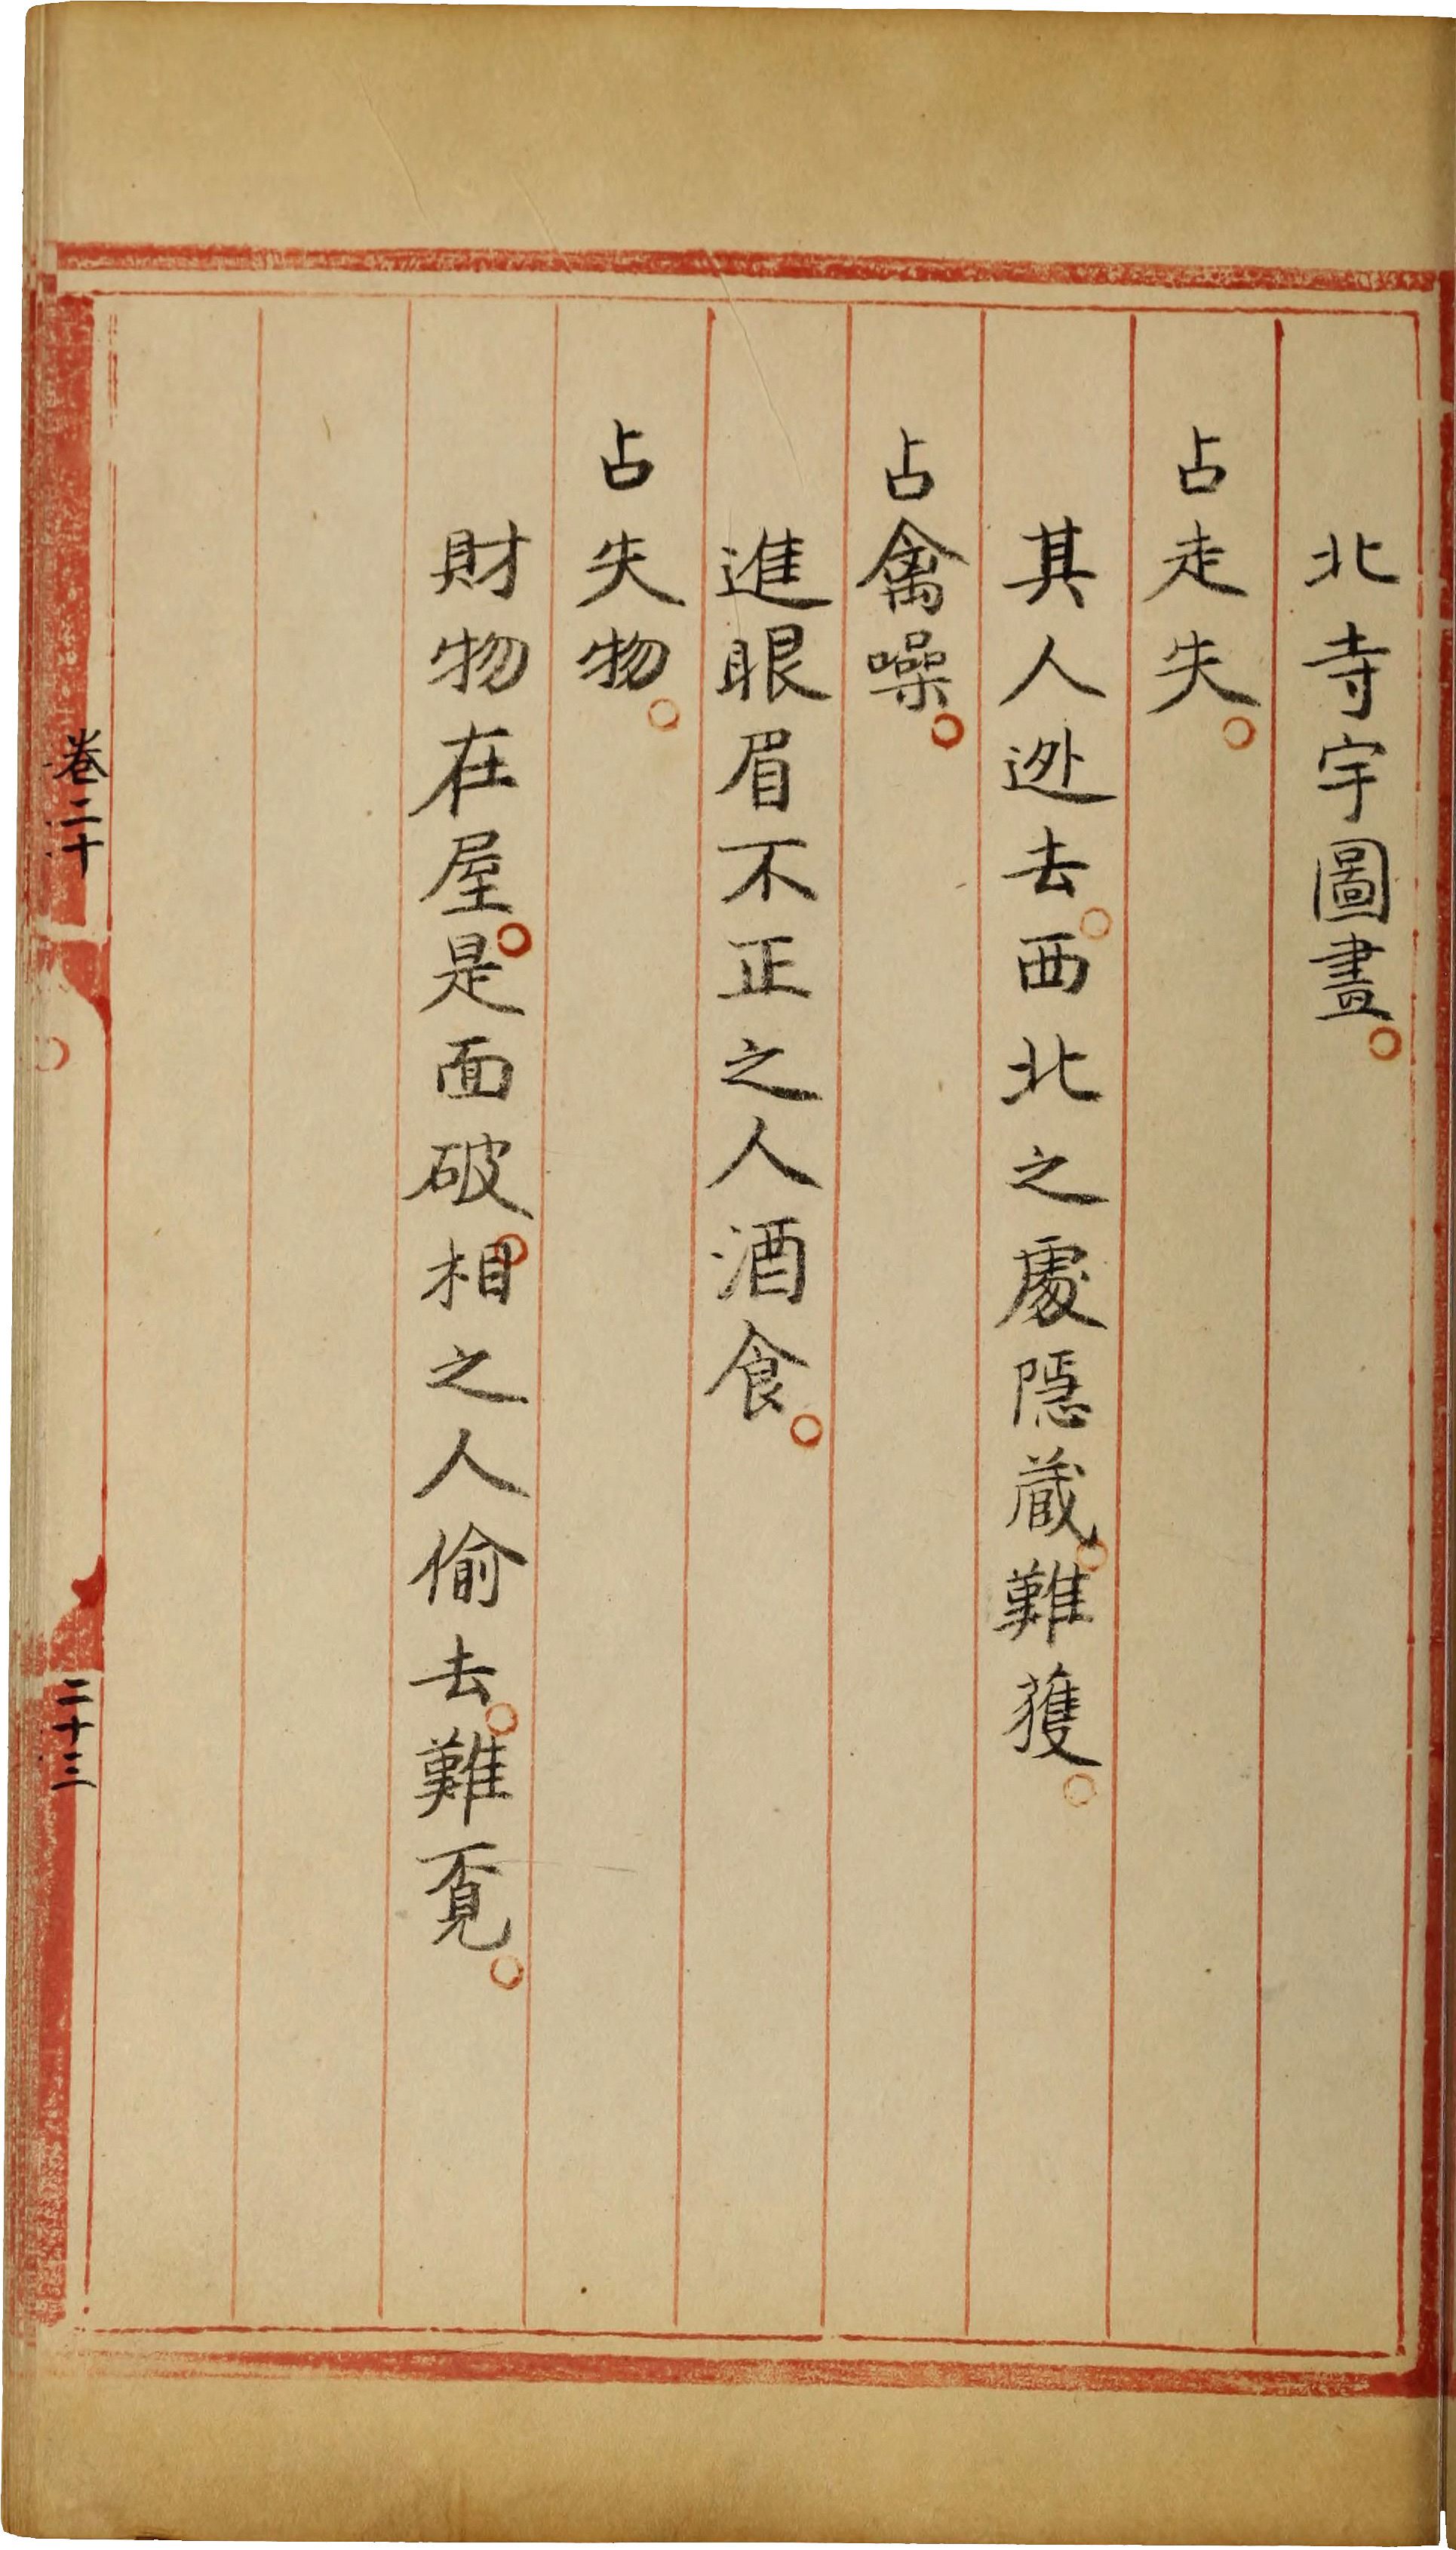 北寺宇圖畫。
占走失。
其人迯去。西北之處隠蔵。難獲。
占禽噪。
進眼眉不正之人酒食。
占失物。
財物在屋。是面破。相之人偷去。難覔。
卷二十
二十三